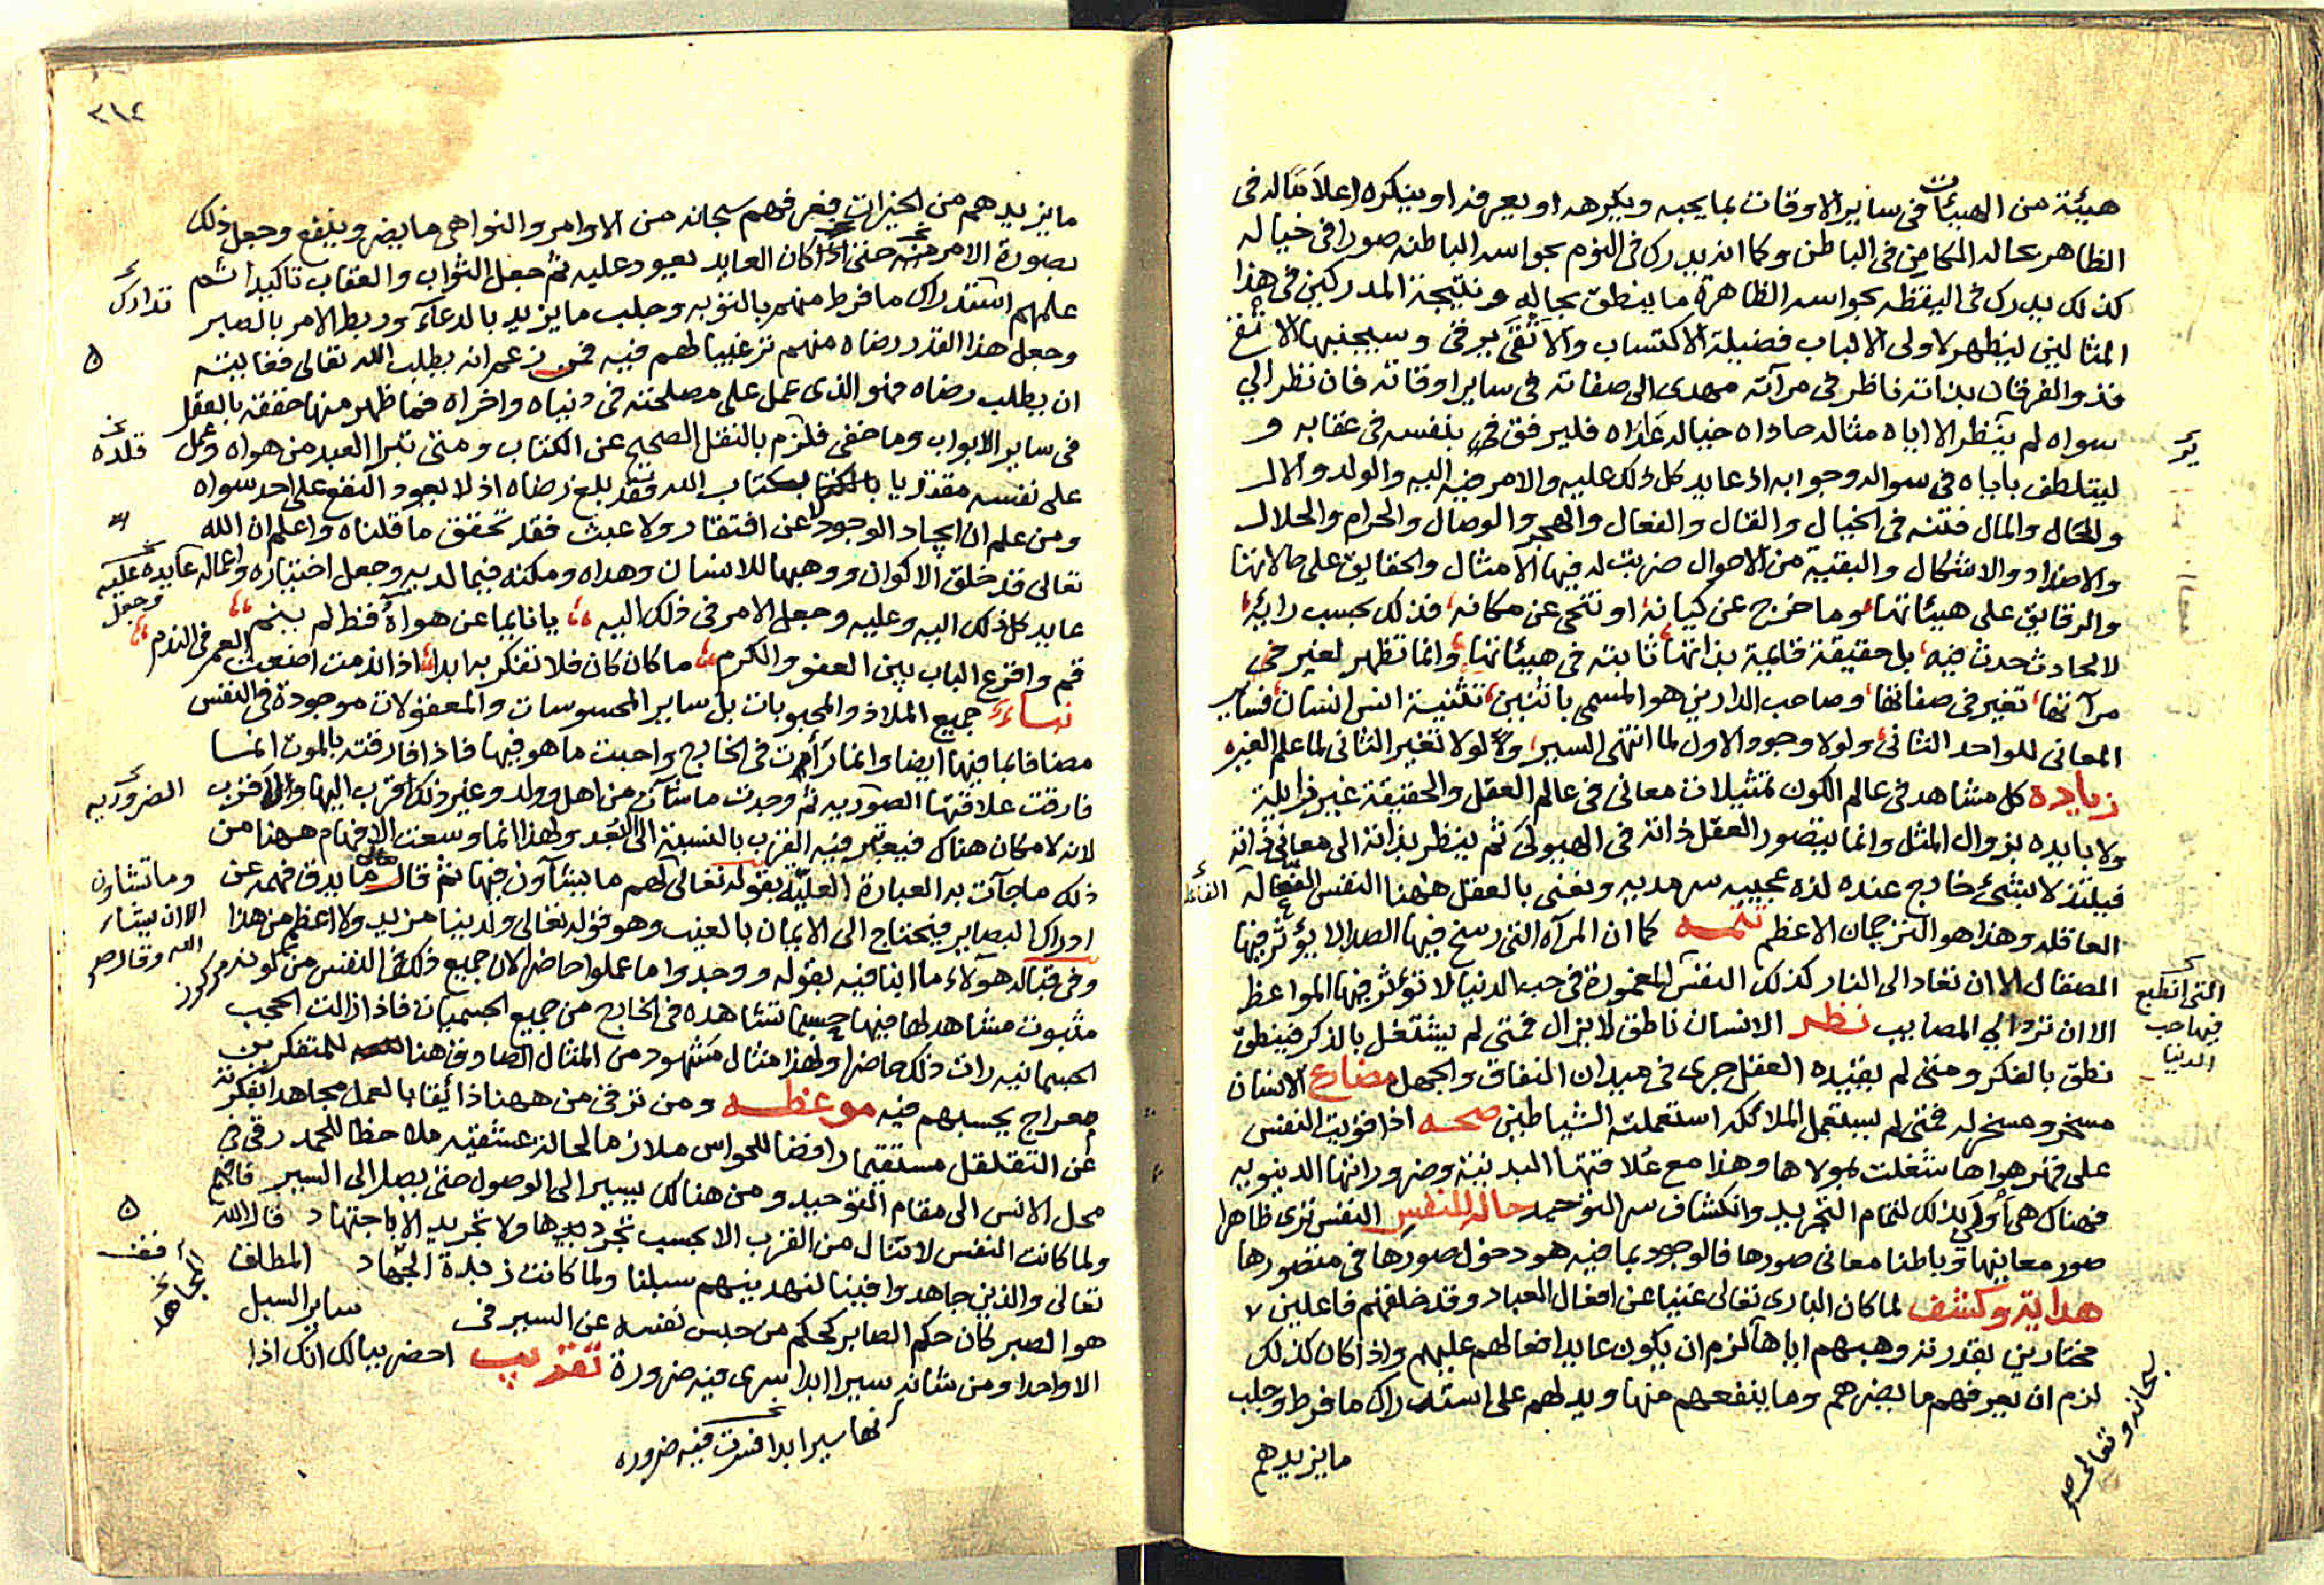 هيئة من الهيئات فى ساير الاوقات بما يحبه ويكرهه او يعرفه او ينكره اعلاما له فى
الظاهر بحاله الكامن فى الباطن وكما انه يدرك فى النوم بحواسه الباطنه صورا فى خياله
كذلك يدرك فى اليقظه بحواسه الظاهرة ما ينطق بحاله ونتيجة المدركين فى هذا
المثالين ليظهر لاولى الالباب فضيلة الاكتساب والاتقى يرقى وسيجنبها الاتقى
فذو الفرقان بذاته ناظر فى مرآته مهدى الى صفاته فى ساير اوقاته فان نظر الى
سواه لم ينظر الا اياه مثاله حاداه خياله فليرفق بنفسه فى عقابه و
ليتلطف باياه فى سواله وجوابه اذ عايد كل ذلك عليه والامر فيه اليه والولد والال
والحال والمال فتنه فى الخيال والقتال والفعال والهجر والوصال والحرام والحلال
والاضداد والاشكال والبقية من الاحوال ضربت له فيها الامثال والحقايق على حالاتها
والرقايق على هيئاتها وما خرج عن كيانه او تنحى عن مكانه فذلك بحسب رايه
لا لحادث حدث فيه بل حقيقة قائمية بذاتها ثابته فى هيئاتها وانما تظهر لغير فى
مرآتها تغير فى صفاتها وصاحب الدارين هو المسمى باثنين تثنية انس انسان فساير
المعانى للواحد الثانى ولولا وجود الاول لما انتهى السير ولولا تغير الثانى لما علم الغير
زيادة كل مشاهد فى عالم الكون تمثيلات معانى فى عالم العقل والحقيقة غير زايلة
ولا بايده بزوال المثل وانما يتصور العقل ذاته فى الهيولى ثم ينظر بذاته الى معانى ذاته
فيلتذ لا بشئ خارج عنده لذه عجيبه سرمديه ونعنى بالعقل ههنا النفس الفعاله
العاقله وهذا هو الترجمان الاعظم تتمه كما ان المرآه التى رسخ فيها الصدا لا يؤثر فيها
الصقال الا ان تعاد الى النار كذلك النفس المغمورة فى حب الدنيا لا تؤثر فيها المواعظ
التى انطبع
فيها حب
الدنيا
الا ان ترد الي المصايب نظر الانسان ناطق لا يزال فمتى لم يشتغل بالذكر فينطق
نطق بالفكر ومتى لم يقيده العقل جرى فى ميدان النفاق والجهل مضارع الانسان
مسخر ومسخر له فمتى لم يستعمل الملائكه استعملته الشياطين صحه اذا قويت النفس
على قهر هواها شغلت بمولاها وهذا مع علاقتها البدنية وضروراتها الدنيويه
فهناك هى أولى بذلك لتمام التجريد وانكشاف سر التوحيد حاله للنفس النفس ترى ظاهرا
صور معانيها وباطنا معانى صورها فالوجود بما فيه هو دخول صورها فى متصورها
هداية وكشف لما كان البارى تعالى غنيا عن افعال العباد وقد خلقهم فاعلين لا
مختارين بقدرته وهبهم اياها لزم ان يكون عايد افعالهم عليهم واذا كان كذلك
لزم ان يعرفهم ما يضرهم وما ينفعهم منها ويدلهم على استدراك ما فرط وجلب
سبحانه وتعالى صح
ما يزيدهم
٣١٤
ما يزيدهم من الخيرات فعرفهم سبحانه من الاوامر والنواهى ما يضر وينفع وجعل ذلك
بصورة الامر منه حتى اذا كان العابد يعود عليه ثم جعل الثواب والعقاب تاكيدا ثم
علمهم استدراك ما فرط منهم بالتوبه وجلب ما يزيد بالدعآء وربط الامر بالصبر
تدارك
وجعل هذا القدر رضاه منهم ترغيبا لهم فيه فمن زعم انه يطلب الله تعالى فغايته
ان يطلب رضاه فهو الذى عمل على مصلحته فى دنياه واخراه فما ظهر منها حققه بالعقل
فى ساير الابواب وما خفى فلزم بالنقل الصحيح عن الكتاب ومتى تبرا العبد من هواه وعمل
قلده
على نفسه مقتديا بكتاب الله فقد بلغ رضاه اذ لا يعود النفع على احد سواه
ومن علم ان ايجاد الوجود لا عن افتقار ولا عبث فقد تحقق ما قلناه واعلم ان الله
تعالى قد خلق الاكوان ووهبها للانسان وهداه ومكنه فيما لديه وجعل اختياره واعماله عايده عليه
عايد كل ذلك اليه وعليه وجعل الامر فى ذلك اليه يا نايما عن هواه قط لم ينم
وجعل
قم واقرع الباب بين العفو والكرم ما كان كان فلا تفكر به ابدا اذا ندمت اضعت العمر فى الندم
جميع الملاذ والمحبوبات بل ساير المحسوسات والمعقولات موجودة فى النفس
مضافا بما فيها ايضا وانما رأت فى الخارج واحبت ما هو فيها فاذا فارقته بالموت انما
فارقت علاقتها الصوريه ثم وجدت ما شآت من اهل وولد وغير ذلك اقرب اليها والا قرب
الضروريه
لانه لا مكان هناك فيعتبر فيه القرب بالنسبة الى البعد ولهذا انما وسعت الافهام ههنا من
ذلك ما جآت به العبارة العليّة بقوله تعالى لهم ما يشآون فيها ثم قال ما يدق فهمه عن
وما تشاون
الا ان يشاء
الله وقال صح
ادراك البصاير فيحتاج الى الايمان بالغيب وهو قوله تعالى ولدينا مزيد ولا اعظم من هذا
وفى قبالة هولاء ما ابنا فيه بقوله ووجدوا ما عملوا حاضرا لان جميع ذلك فى النفس مركوز
مثبوت مشاهد لها فيها حسبما تشاهده فى الخارج من جميع الجسميات فاذا زالت الحجب
الجسمانيه رات ذلك حاضرا ولهذا مثال مشهود من المثال الصادق هنا للمتفكرين
معراج يحسبهم فيه موعظه ومن ترقى من ههنا ذائقا بالعمل مجاهدا بفكرته
عن التقلقل مستقيما رافضا للحواس ملازما لحالة عشقيه ملاحظا للحمد رقى فى
محل الانس الى مقام التوحيد ومن هنالك يسير الى الوصول حتى يصل الى السير
ولما كانت النفس لا تنال من القرب الا بحسب تجريدها ولا تجريد الا باجتهاد قال الله
تعالى والذين جاهدوا فينا لنهدينهم سبلنا ولما كانت زبدة الجهاد المطلق
المجاهد
هو الصبر كان حكم الصابر كحكم من حبس نفسه عن السير فى ساير السبل
الا واحدا ومن شانه سيرا ابدا سرى فيه ضرورة تقريب احضر ببالك انك اذا